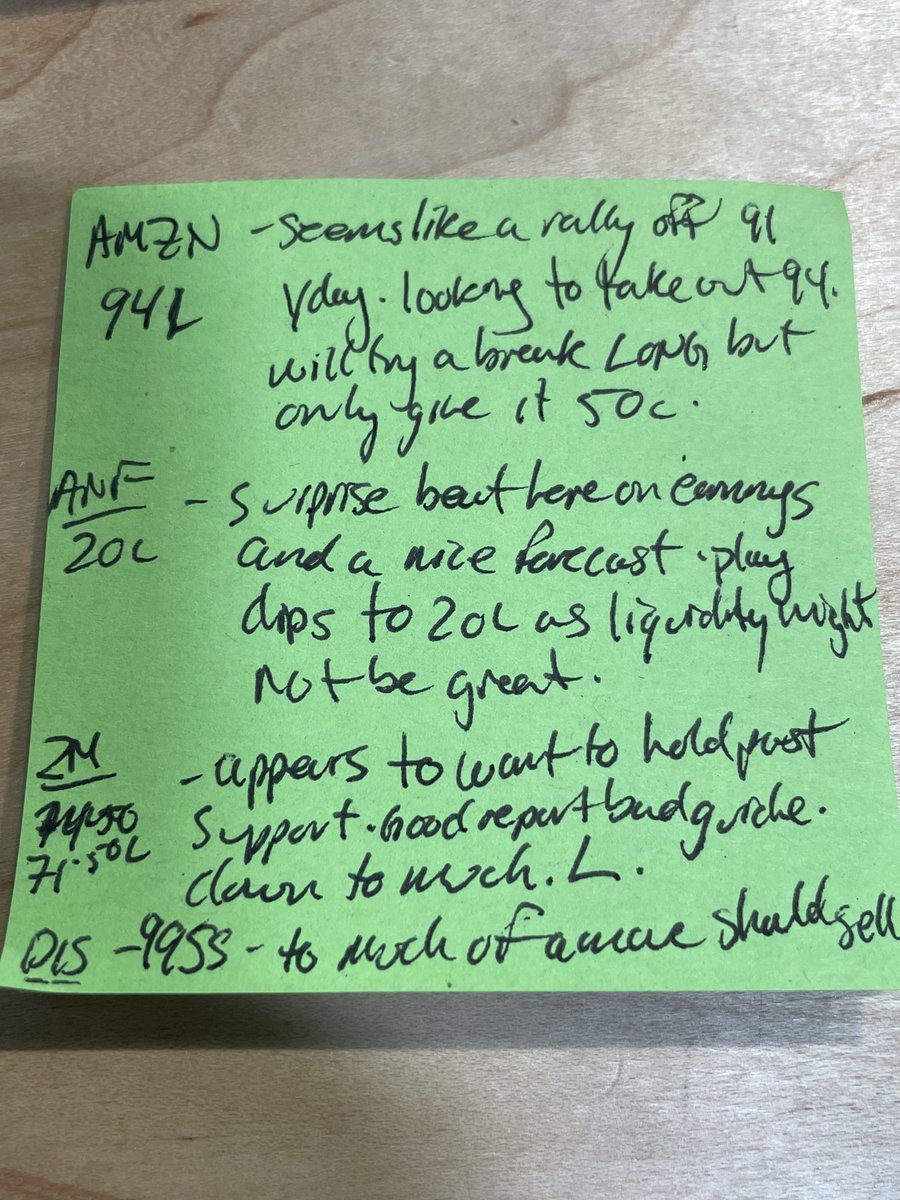 AMZN - Seems like a rally off 91
94L yday. looking to take out 94.
will try a break LONG but
only give it 50c.
ANF - Surprise beat here on earnings
20L and a nice forecast. play
dips to 20L as liquidity might
not be great.
ZM - appears to want to hold past
74.50 support. Good report bad guide.
71.50L down to much. L.
DIS - 99.5S - to much of a move should sell